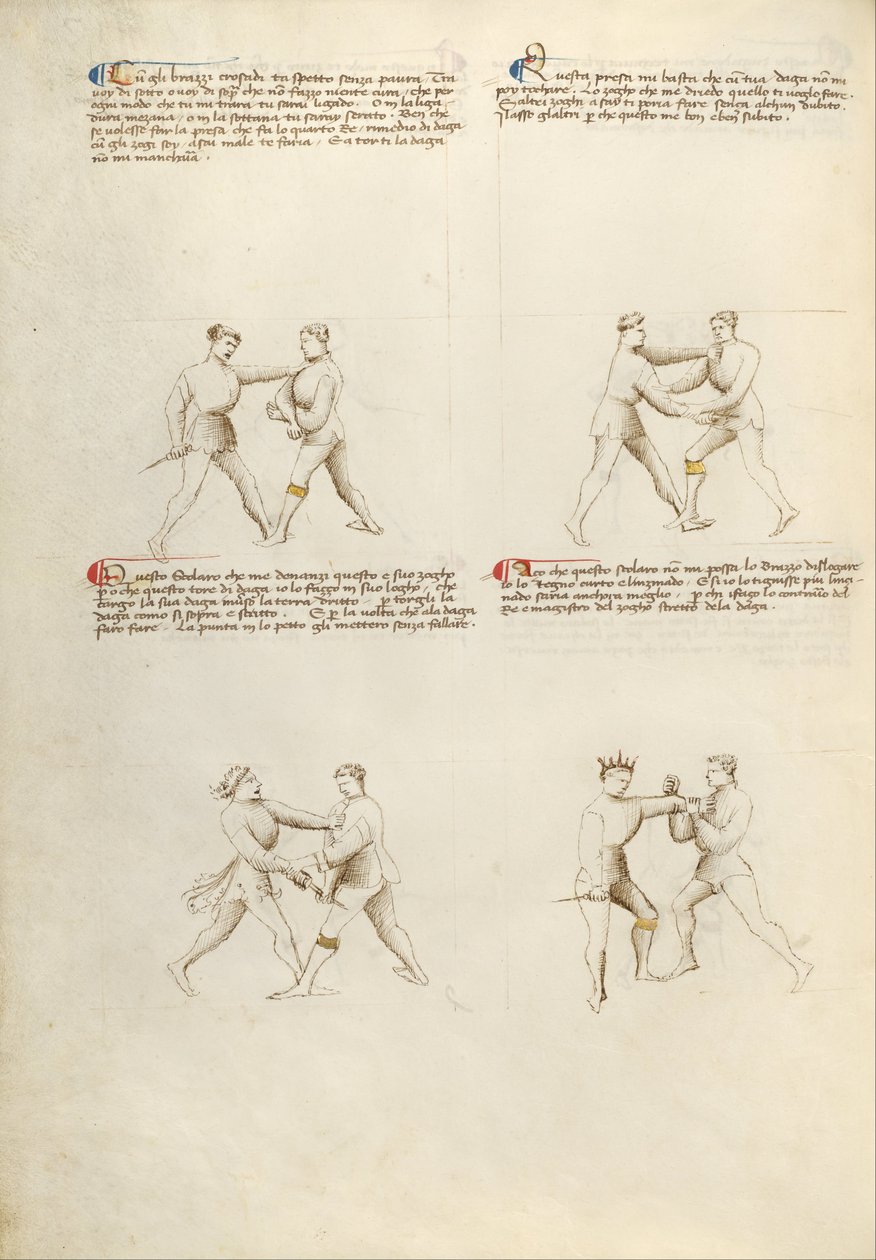 Cum gli brazzi crosadi ta spetto senza paura, Tra
voy di sotto o voy di sopra che non fazzo niente cura, che per
ogni modo che tu mi trara tu sarai ligado. O in la liga,
dura mezana, o in la sottana tu saray serato. Ben che
se volesse far la presa che fa lo quarto Re, rimedio di daga
cum gli zogi soy, asai male te faria, E a tor ti la daga
non mi
Questa presa mi basta che cum tua daga non mi
poy tochare. Lo zogho che me driedo quello ti voglo fare.
E altri zoghi asay ti poria fare senca alchun dubito.
Jlasso glaltri per che questo me bon e ben subito.
Questo Scolaro che me denanzi questo e suo zogho
pero che questo tore di daga io lo fazzo in suo logho, che
torgo la sua daga inverso la terra dritto per torgli la
daga como si sopra e scritto. E per la volta che ala daga
faro fare. La punta in lo petto gli mettero senza fallare.
Aco che questo scolaro non mi possa lo Brazzo dislogare
io lo tegno curto e linzinado, E si io lo tignisse piu linci-
nado saria anchora meglio, per chi i fago lo contrario del
Re e magistro del zogho stretto dela daga.